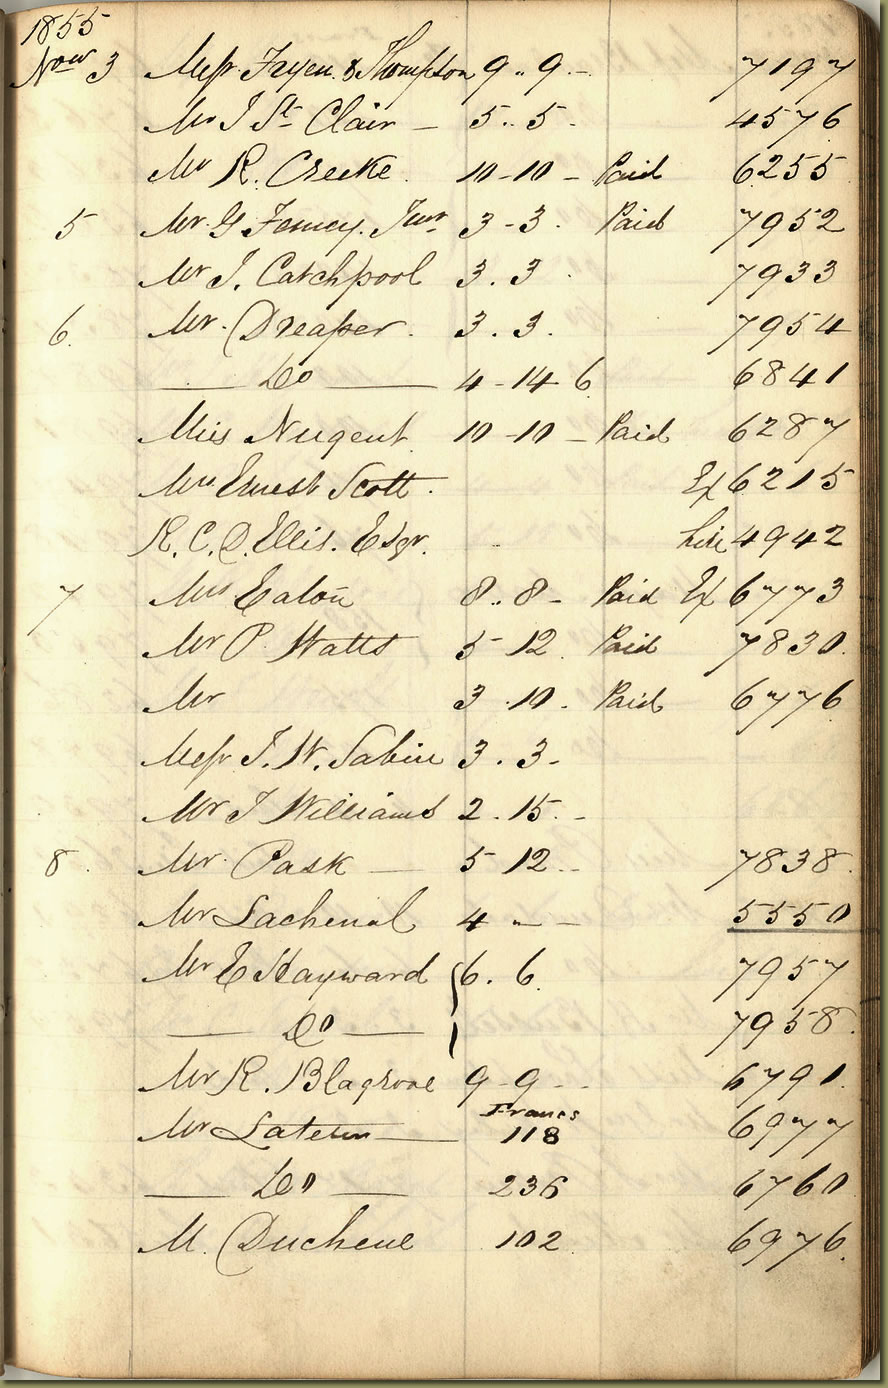 1855
Novr 3 Messr Fryen & Thompson 9 .. 9 - 7197
Mr J St Clair - 5 .. 5 - 4576
Mr R. Creeke. 10 - 10 - Paid 6255
5 Mr G Femcy. Junr 3 - 3. Paid 7952
Mr J. Catchpool 3 . 3 . 7933
6 Mr. Dreaper. 3 . 3. 7954
Do 4 - 14 6 6841
Miss Nugent 10 - 10 - Paid 6287
Mrs Ernest Scott. Ex 6215
R. C. D. Ellis. Esqr. hire 4942
7 Mrs Eaton 8 .. 8 - Paid Ex 6773
Mr P. Watts 5 12. Paid 7830.
Mr 3 . 10 . Paid 6776
Messr J. W. Sabin 3 . 3 -
Mr J Williams 2 . 15. -
8. Mr. Pask 5 12 .. 7838.
Mr Lachenal 4 - - 5550
Mr E Hayward 6 . 6. 7957
Do 7958.
Mr R. Blagrove 9 - 9 - - 6791.
Francs
Mr Laterin 118 6977
Do 236 6760
M. Duchene 102 6976.